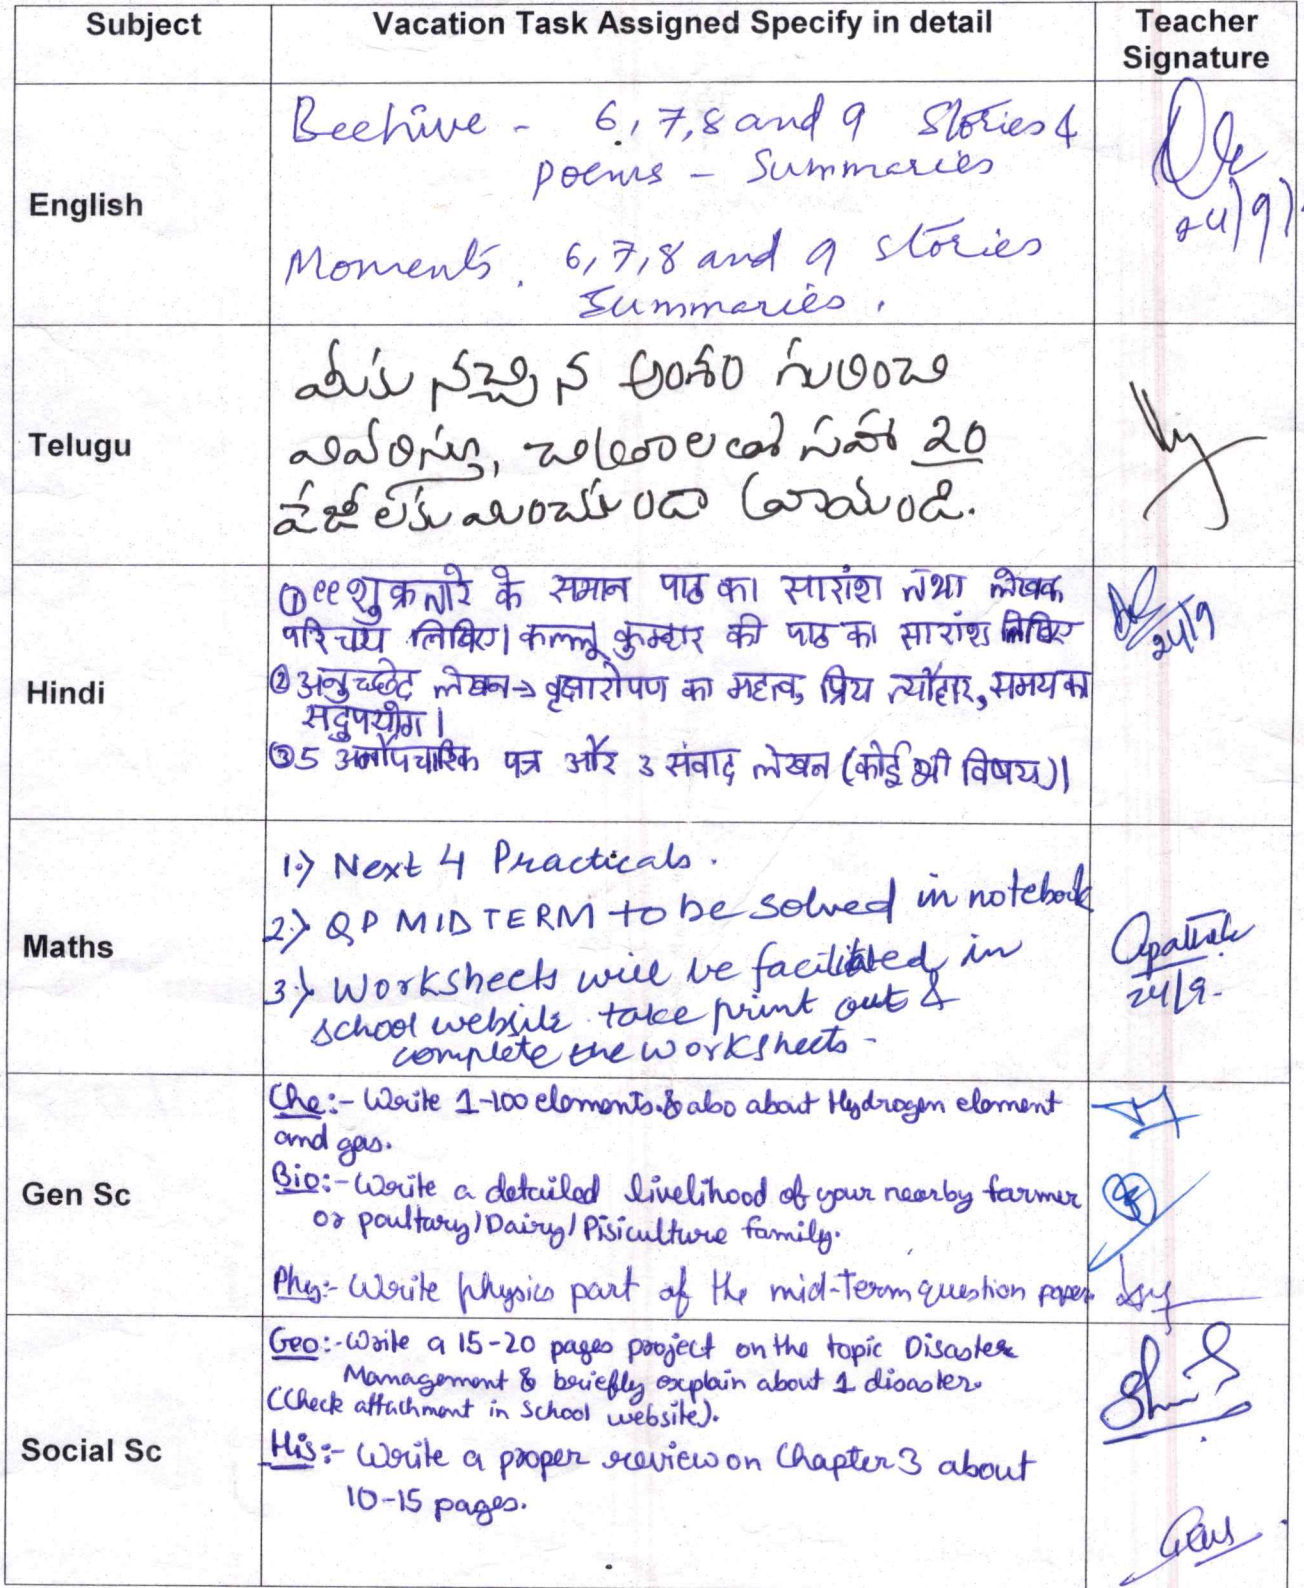 Subject Vacation Task Assigned Specify in detail Teacher
Signature
English
Beehive - 6, 7, 8 and 9 Stories &
poems - Summaries
24/9/
Moments. 6, 7, 8 and 9 stories
Summaries.
Telugu
మీకు నచ్చిన అంశం గురించి
వివరిస్తు, చిత్రాలతో సహా 20
పేజీలకు మించకుండా వ్రాయండి.
Hindi
① ee शुक्रतारे के समान पाठ का सारांश तथा लेखक
परिचय लिखिए। कल्लू कुम्हार की पाठ का सारांश लिखिए
24/9
② अनुच्छेद लेखन → वृक्षारोपण का महत्व, प्रिय त्यौहार, समय का
सदुपयोग।
③ 5 अनौपचारिक पत्र और 3 संवाद लेखन (कोई भी विषय)।
Maths
1.) Next 4 Practicals.
2.) QP MID TERM to be solved in notebook
3.) Worksheets will be facilitated in
school website. take print out &
complete the worksheets -
24/9.
Gen Sc
Che:- Write 1-100 elements. & also about Hydrogen element
and gas.
Bio:- Write a detailed livelihood of your nearby farmer
or poultary/Dairy/Pisiculture family.
Phy:- Write physics part of the mid-Term question paper.
Social Sc
Geo:- Write a 15-20 pages project on the topic Disaster
Management & briefly explain about 1 disaster.
(Check attachment in School website).
His:- Write a proper review on Chapter 3 about
10-15 pages.